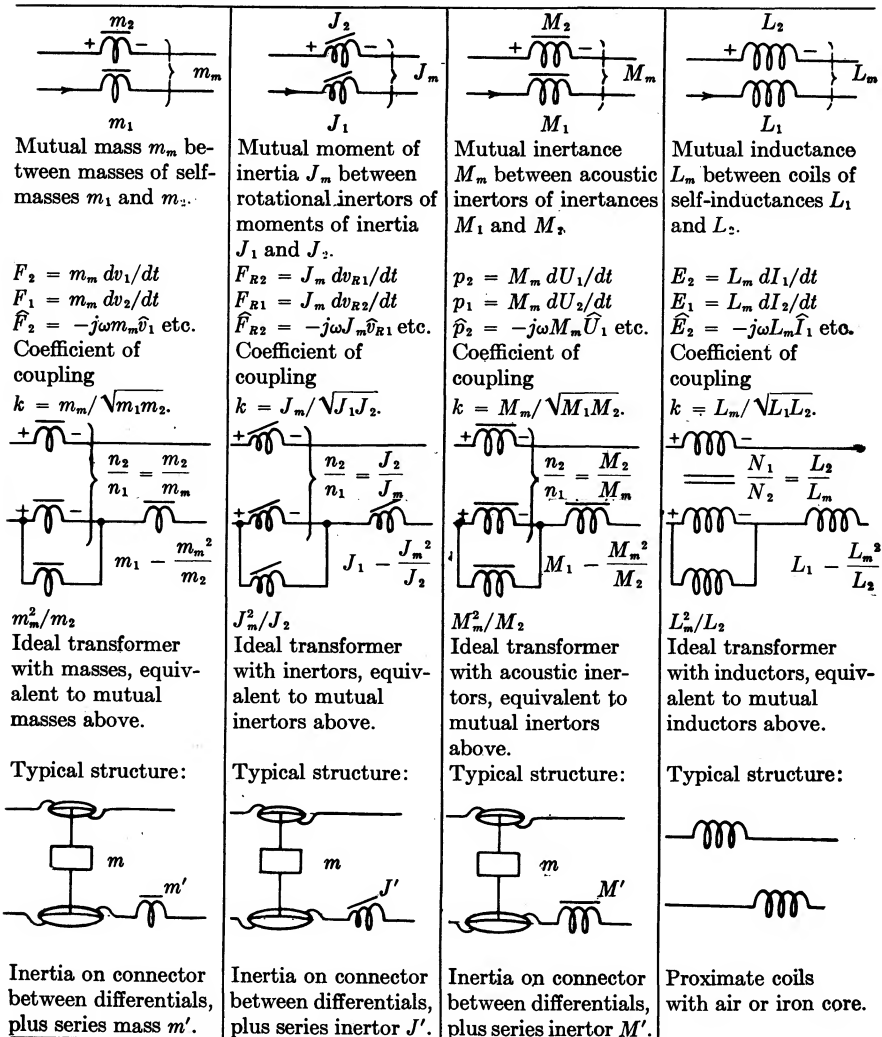 m₂
+ −
mₘ
m₁
Mutual mass mₘ be-
tween masses of self-
masses m₁ and m₂.
F₂ = mₘ dv₁/dt
F₁ = mₘ dv₂/dt
F̂₂ = −jωmₘv̂₁ etc.
Coefficient of
coupling
k = mₘ/√m₁m₂.
+ −
n₂/n₁ = m₂/mₘ
+ −
m₁ − mₘ²/m₂
mₘ²/m₂
Ideal transformer
with masses, equiv-
alent to mutual
masses above.
Typical structure:
m
m′
Inertia on connector
between differentials,
plus series mass m′.
J₂
+ −
Jₘ
J₁
Mutual moment of
inertia Jₘ between
rotational inertors of
moments of inertia
J₁ and J₂.
F_R2 = Jₘ dv_R1/dt
F_R1 = Jₘ dv_R2/dt
F̂_R2 = −jωJₘv̂_R1 etc.
Coefficient of
coupling
k = Jₘ/√J₁J₂.
+ −
n₂/n₁ = J₂/Jₘ
+ −
J₁ − Jₘ²/J₂
Jₘ²/J₂
Ideal transformer
with inertors, equiv-
alent to mutual
inertors above.
Typical structure:
m
J′
Inertia on connector
between differentials,
plus series inertor J′.
M₂
+ −
Mₘ
M₁
Mutual inertance
Mₘ between acoustic
inertors of inertances
M₁ and M₂.
p₂ = Mₘ dU₁/dt
p₁ = Mₘ dU₂/dt
p̂₂ = −jωMₘÛ₁ etc.
Coefficient of
coupling
k = Mₘ/√M₁M₂.
+ −
n₂/n₁ = M₂/Mₘ
+ −
M₁ − Mₘ²/M₂
Mₘ²/M₂
Ideal transformer
with acoustic iner-
tors, equivalent to
mutual inertors
above.
Typical structure:
m
M′
Inertia on connector
between differentials,
plus series inertor M′.
L₂
+ −
Lₘ
L₁
Mutual inductance
Lₘ between coils of
self-inductances L₁
and L₂.
E₂ = Lₘ dI₁/dt
E₁ = Lₘ dI₂/dt
Ê₂ = −jωLₘÎ₁ etc.
Coefficient of
coupling
k = Lₘ/√L₁L₂.
+ −
N₁/N₂ = L₂/Lₘ
+ −
L₁ − Lₘ²/L₂
Lₘ²/L₂
Ideal transformer
with inductors, equiv-
alent to mutual
inductors above.
Typical structure:
Proximate coils
with air or iron core.